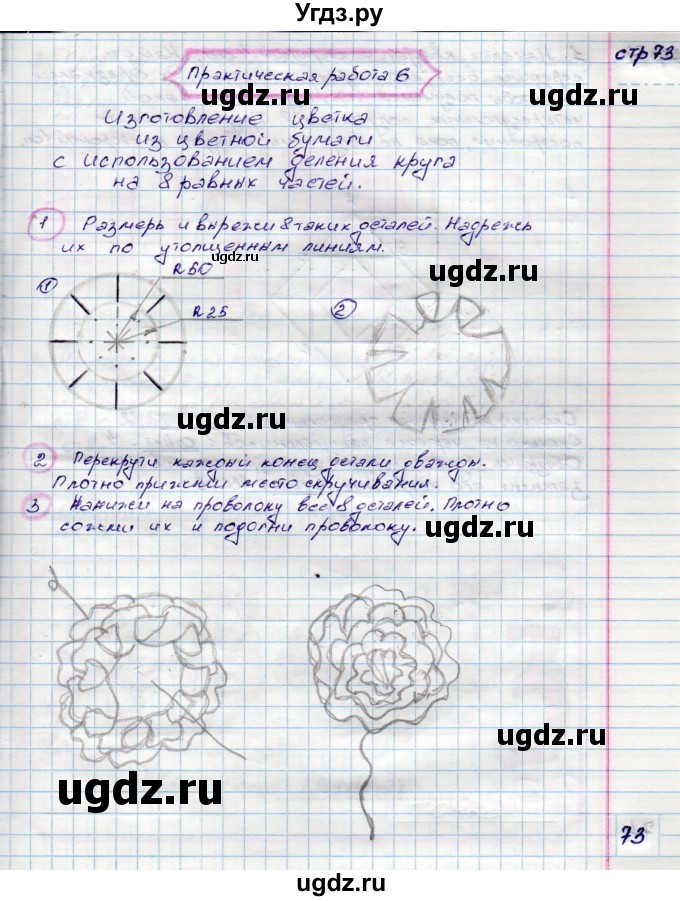 Угдз.ру
стр 73
Практическая работа 6
ugdz.ru
Изготовление цветка
из цветной бумаги
ugdz.ru
с использованием деления круга
на 8 равных частей.
1 Размерь и вырежи 8 таких деталей. Надрежь
их по утолщенным линиям.
ugdz.ru
ugdz.ru
R 50
1
R 25
2
ugdz.ru
ugdz.ru
2 Перекрути каждый конец детали дважды.
Плотно прижми место скручивания.
3 Нанижи на проволоку все 8 деталей. Плотно
сожми их и подогни проволоку.
ugdz.ru
ugdz.ru
ugdz.ru
ugdz.ru
73
ugdz.ru